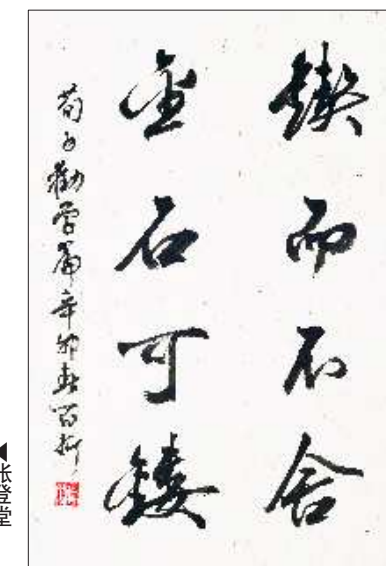 锲而不舍
金石可镂
荀子劝学篇辛卯春百忻
◀张登堂